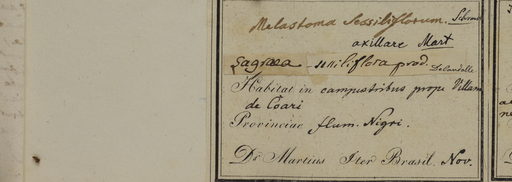 Melastoma Sessiliflorum. Schrank
axillare Mart
Sagraea sessiliflora prod.
Decandolle
Habitat in campestribus prope Villam
de Coari
Provinciae flum. Nigri.
Dr. Martius Iter Brasil. Nov.